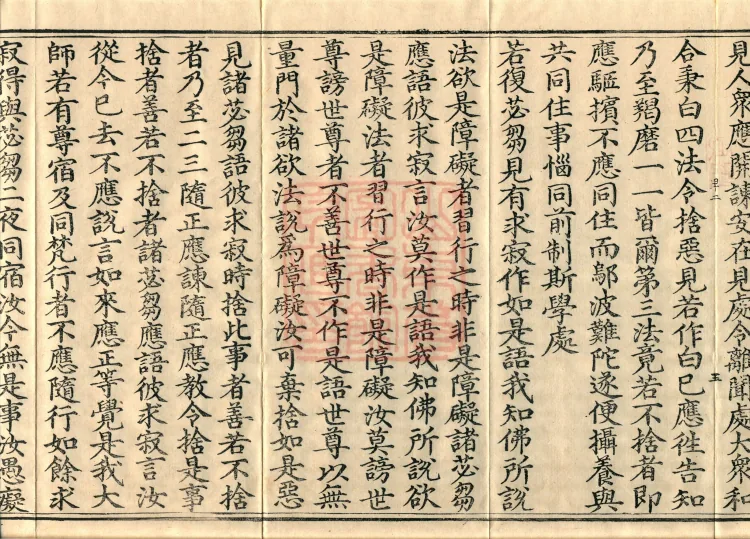 見人衆應開諫安在見處令離聞處大衆和
合秉白四法令捨惡見若作白已應往告知
乃至羯磨一一皆爾第三法竟若不捨者即
應驅擯不應同住而鄔波難陀遂便攝養與
共同住事惱同前制斯學處
若復苾芻見有求寂作如是語我知佛所說
法欲是障礙者習行之時非是障礙諸苾芻
應語彼求寂言汝莫作是語我知佛所說欲
是障礙法者習行之時非是障礙汝莫謗世
尊謗世尊者不善世尊不作是語世尊以無
量門於諸欲法說為障礙汝可棄捨如是惡
見諸苾芻語彼求寂時捨此事者善若不捨
者乃至二三隨正應諫隨正應教令捨是事
捨者善若不捨者諸苾芻應語彼求寂言汝
從今已去不應說言如來應正等覺是我大
師若有尊宿及同梵行者不應隨行如餘求
寂得與苾芻二夜同宿汝今無是事汝愚癡